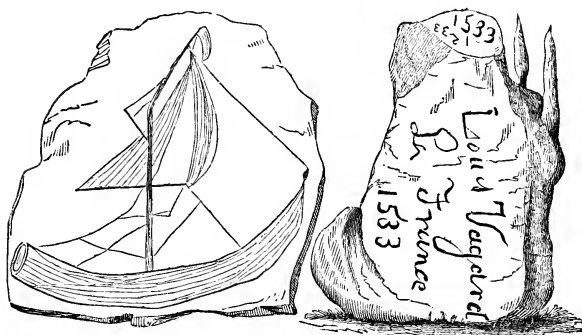 1533
Louis Vagard
France
1533